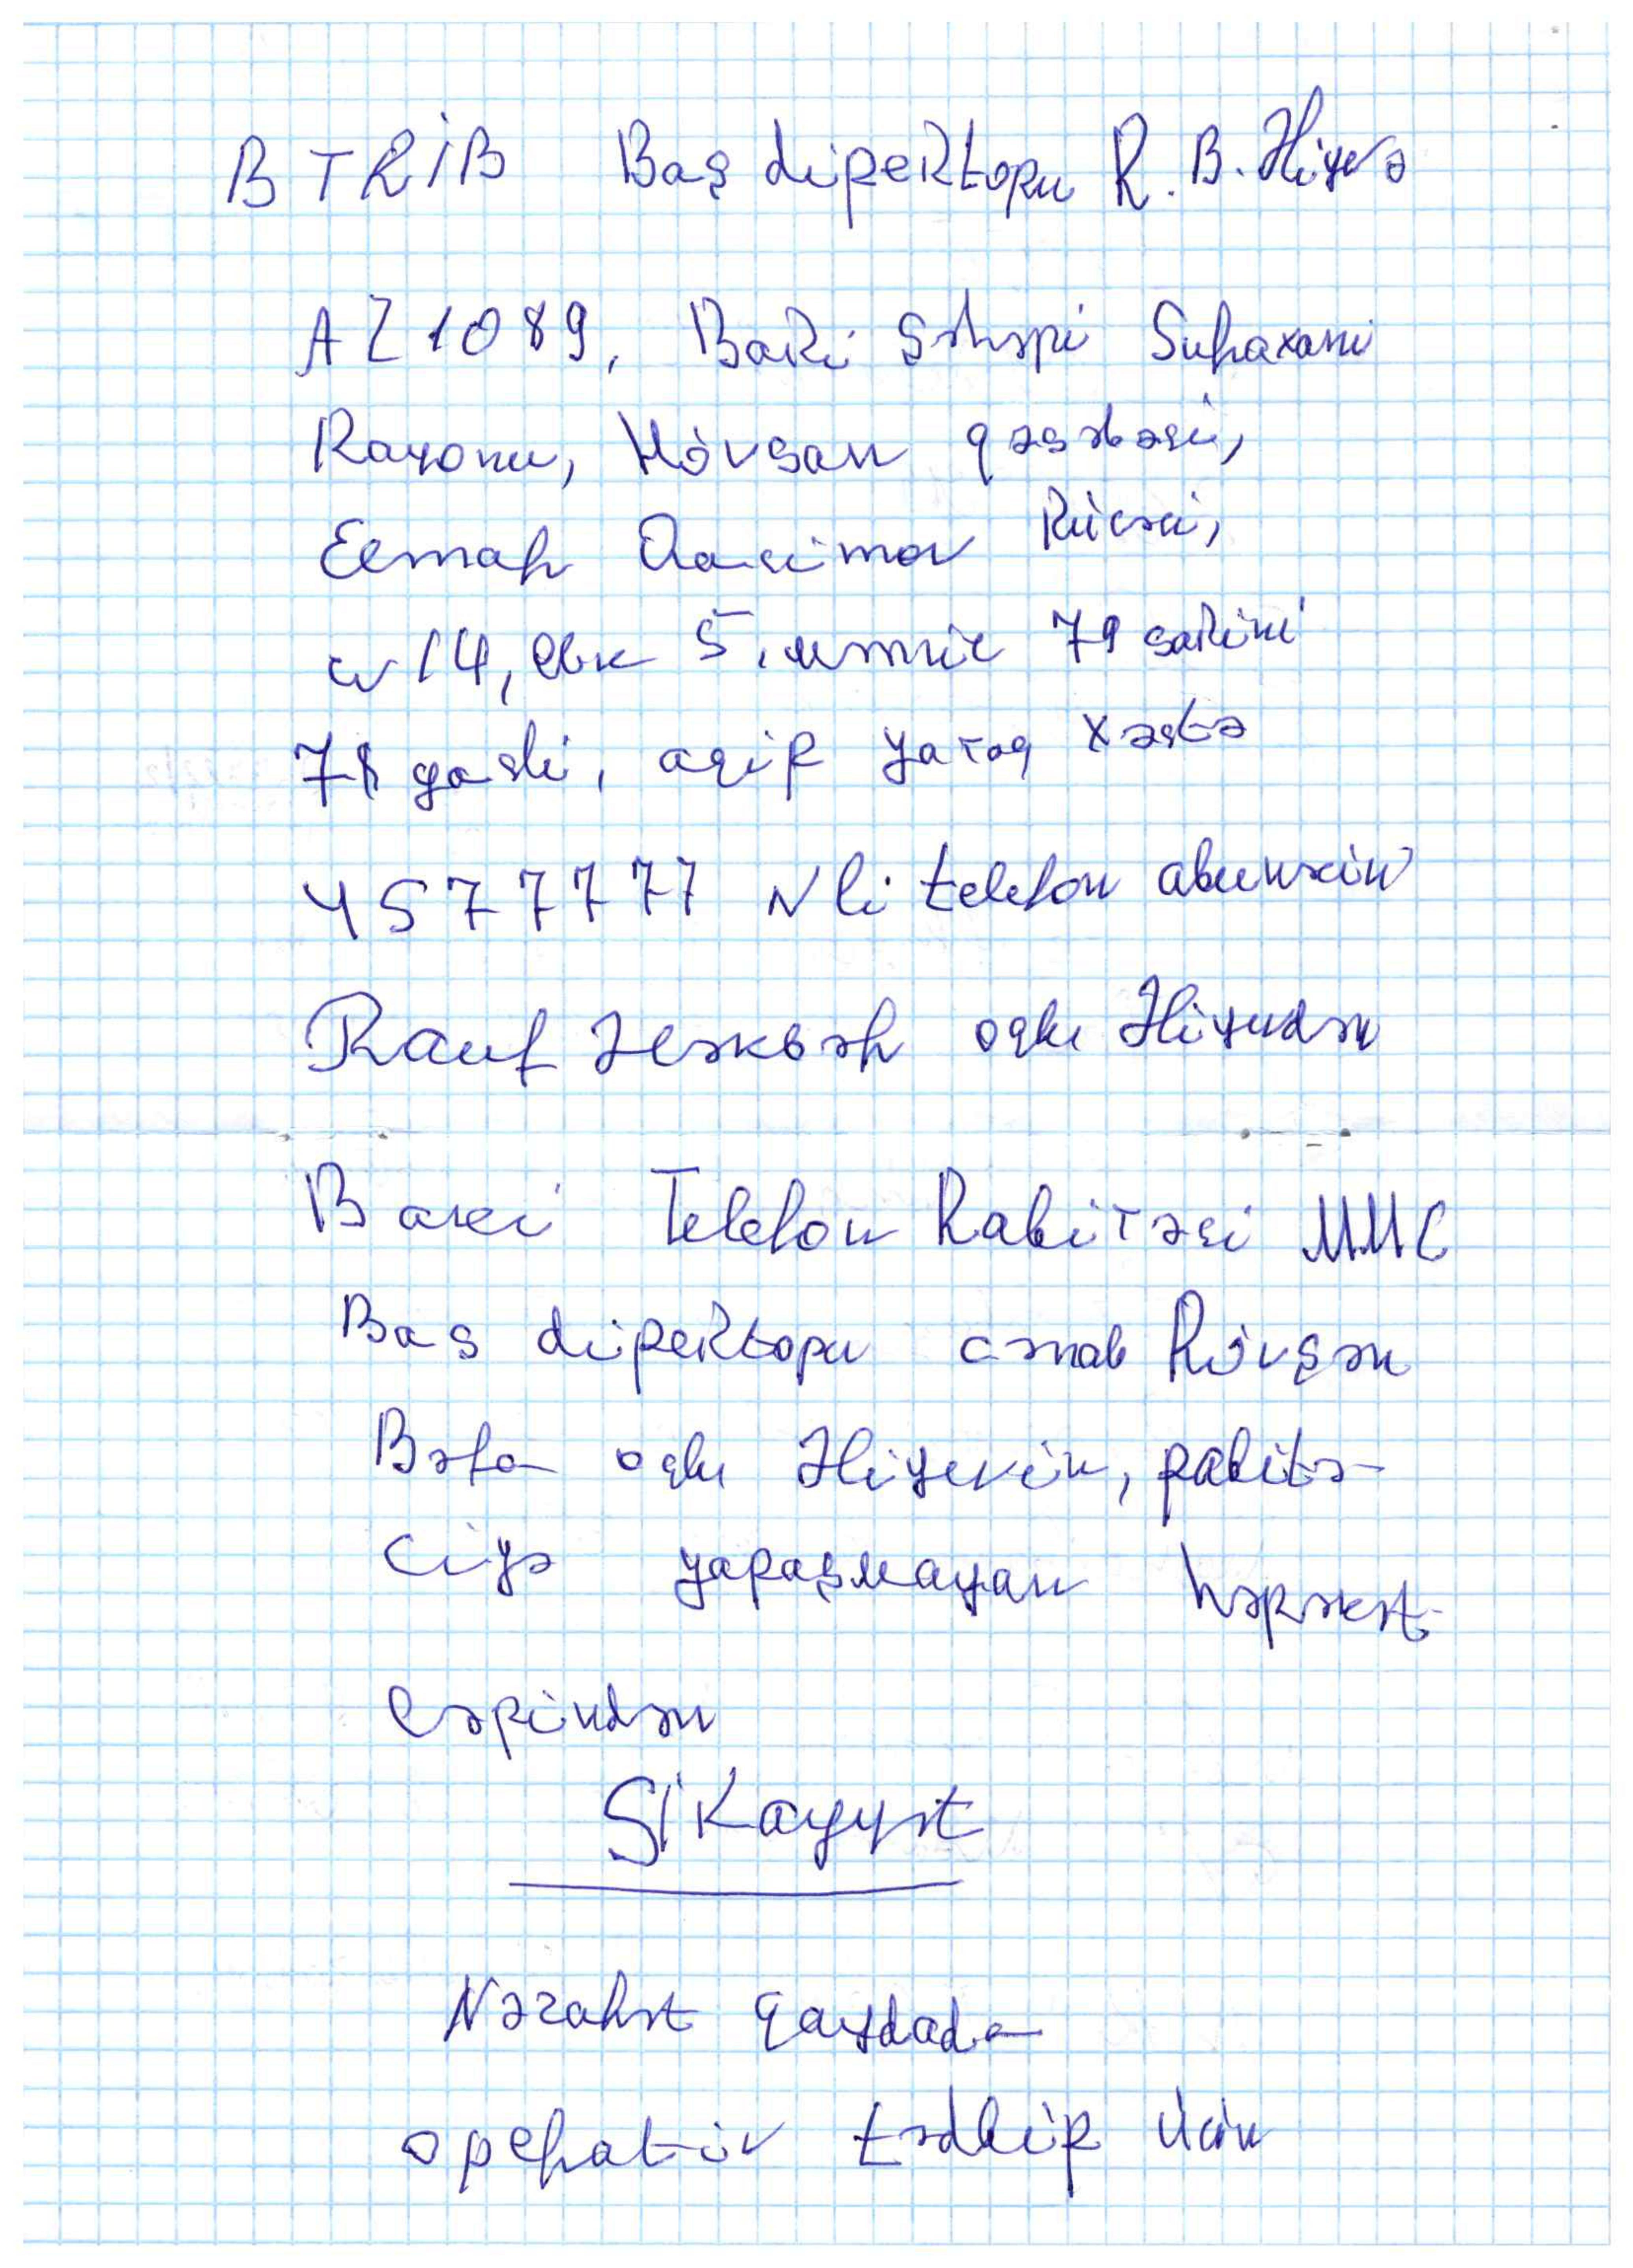 BTRİB Baş direktoru R. B. Əliyevə
AZ1089, Bakı şəhəri Suraxanı
Rayonu, Hövsan qəsəbəsi,
Elmar Qasimov Küçəsi,
ev 14, blk 5, mənzil 79 sakini
78 yaşlı, ağır yataq xəstə
4577777 Nli telefon abunəçin
Rauf Ələkbər oğlu Əliyevdən
Bakı Telefon Rabitəsi MMC
Baş direktoru cənab Rövşən
oğlu Əliyevin, rabitə-
çiyə yaraşmayan hərəkət-
lərindən
ŞİKayyət
Nəzarət qaydada
operativ tədbir üçün